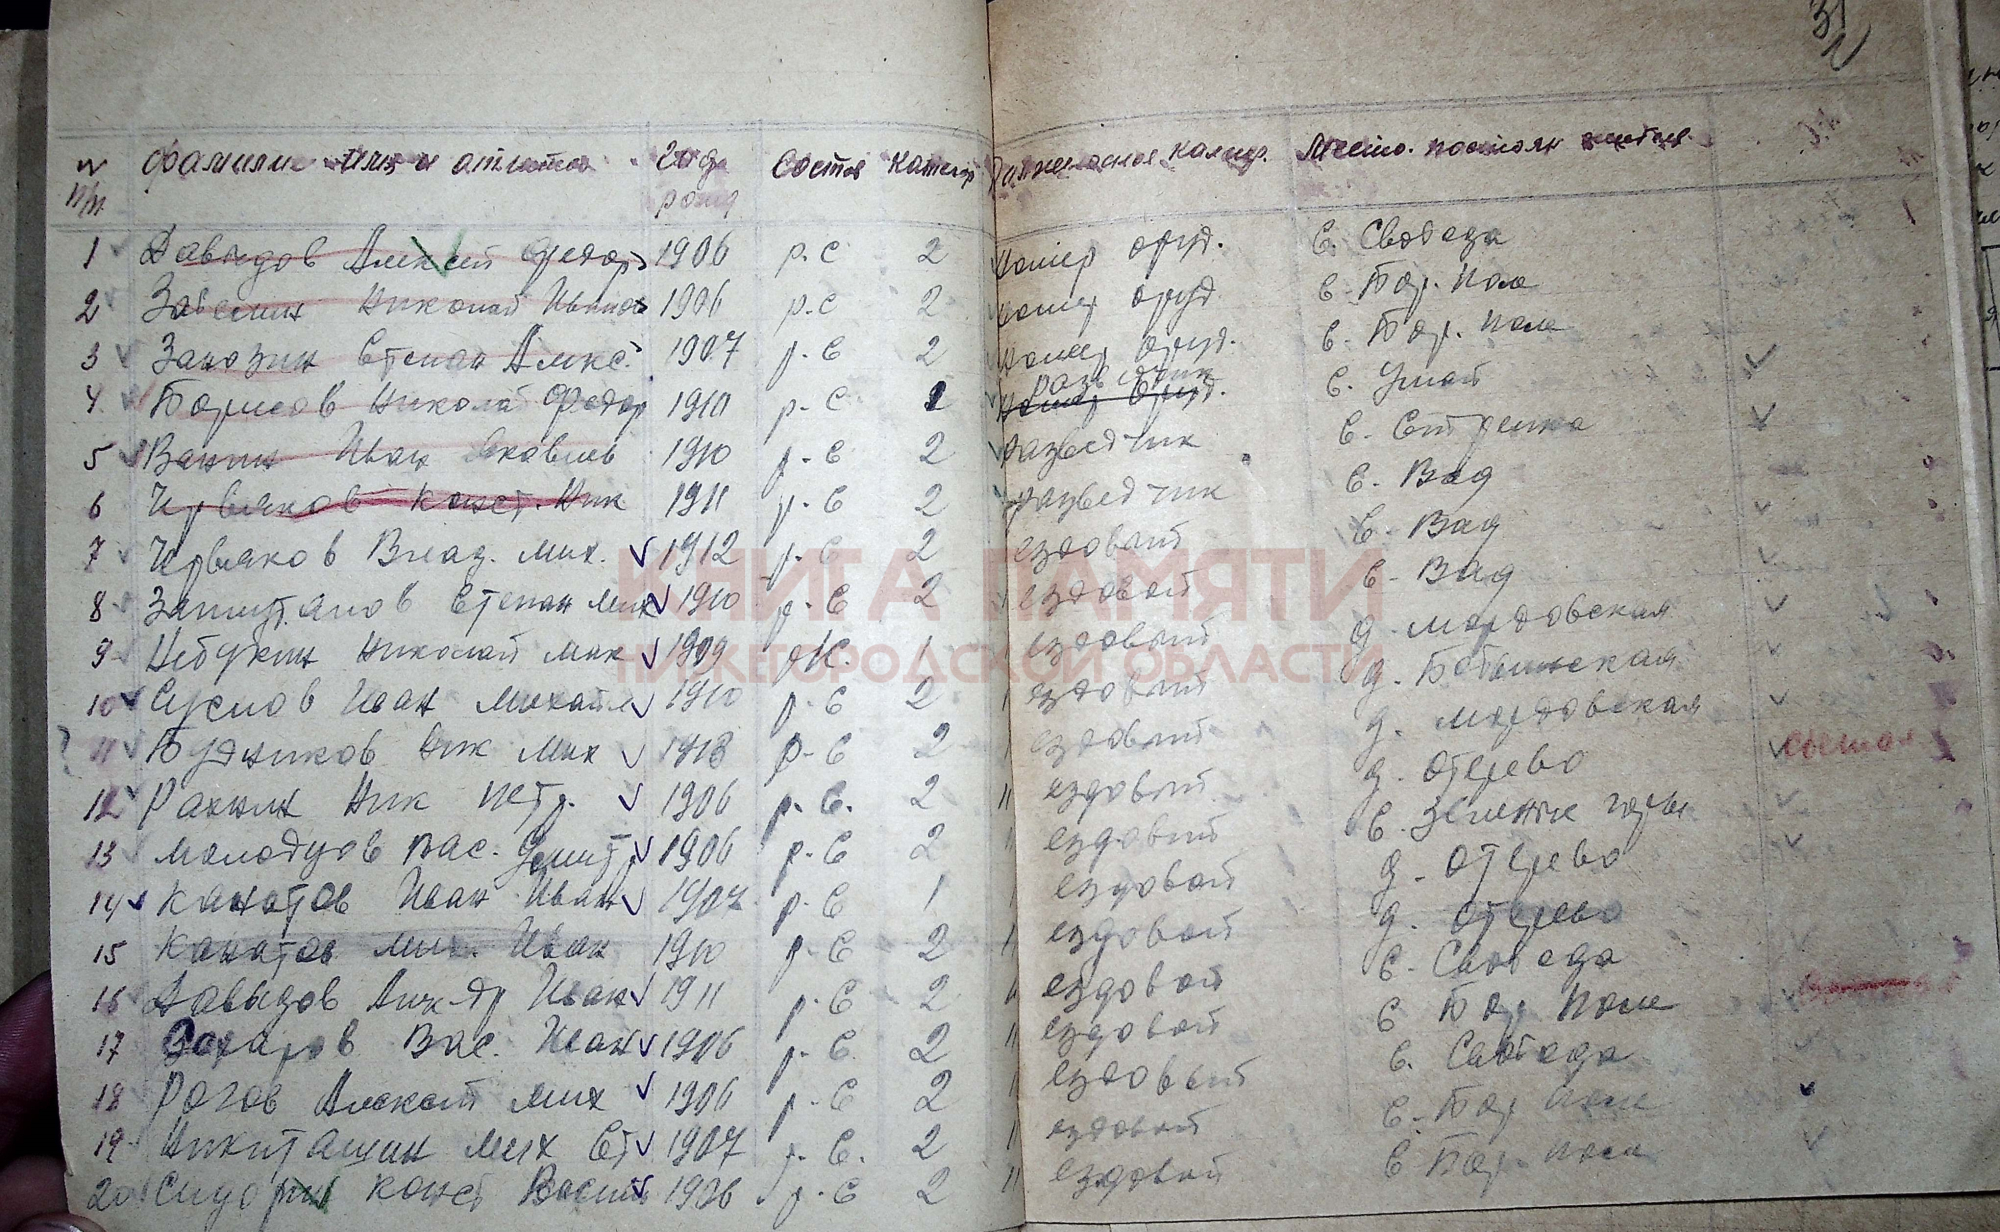 31
№ Фамилия имя и отчество Года Состав Категор Должностная калиф. Место постоян житья
п/п рожд
1 Давыдов Алексей Федор 1906 р.С 2 номер оруд. С. Свобода
2 Николай Иванов 1906 р.С 2 номер оруд С. Бол. Поле
3 Занозин Степан Алекс. 1907 р.С 2 номер оруд. С. Бол. Поле
разведчик
4 Борисов Николай Федор 1910 р-С номер оруд. С.
5 Ванин Иван Яковлев 1910 р-С 2 разведчик С. Стрелка
6 Червяков Конст. Ник 1911 р-С 2 разведчик С. Вад
7 Червяков Влад. Мих. 1912 р-С 2 ездовый С. Вад
8 Степан Мих 1910 р-С 2 ездовой С. Вад
9 Николай Мих 1909 1 ездовый д. Мордовская
10 Суслов Иван Михайл 1910 р-С 2 ездовый д.
11 Будников Ник Мих р-С 2 ездовый д. Мордовская
12 Ник Петр. 1906 р.С. 2 ездовый д. Отерево
13 Молодцов Вас. Дмитр 1906 р-С 2 ездовый С. Зеленые горы
14 Канатов Иван Иван 1907 р-С 1 ездовой д. Отерево
15 Канатов Мих. Иван 1910 р-С 2 ездовой д. Отерево
16 Давыдов Ал-др Иван 1911 р-С 2 ездовой С. Свобода
17 Захаров Вас. Иван 1906 р-С. 2 ездовой С Бол Поле
18 Рогов Алексей Мих 1906 р-С 2 ездовый С. Свобода
19 Никиташин Мих Ст 1907 р-С. 2 ездовой С. Бол Поле
20 Сидорин Конст Васил 1906 р-С 2 ездовой С Бол. Поле
КНИГА ПАМЯТИ
НИЖЕГОРОДСКОЙ ОБЛАСТИ